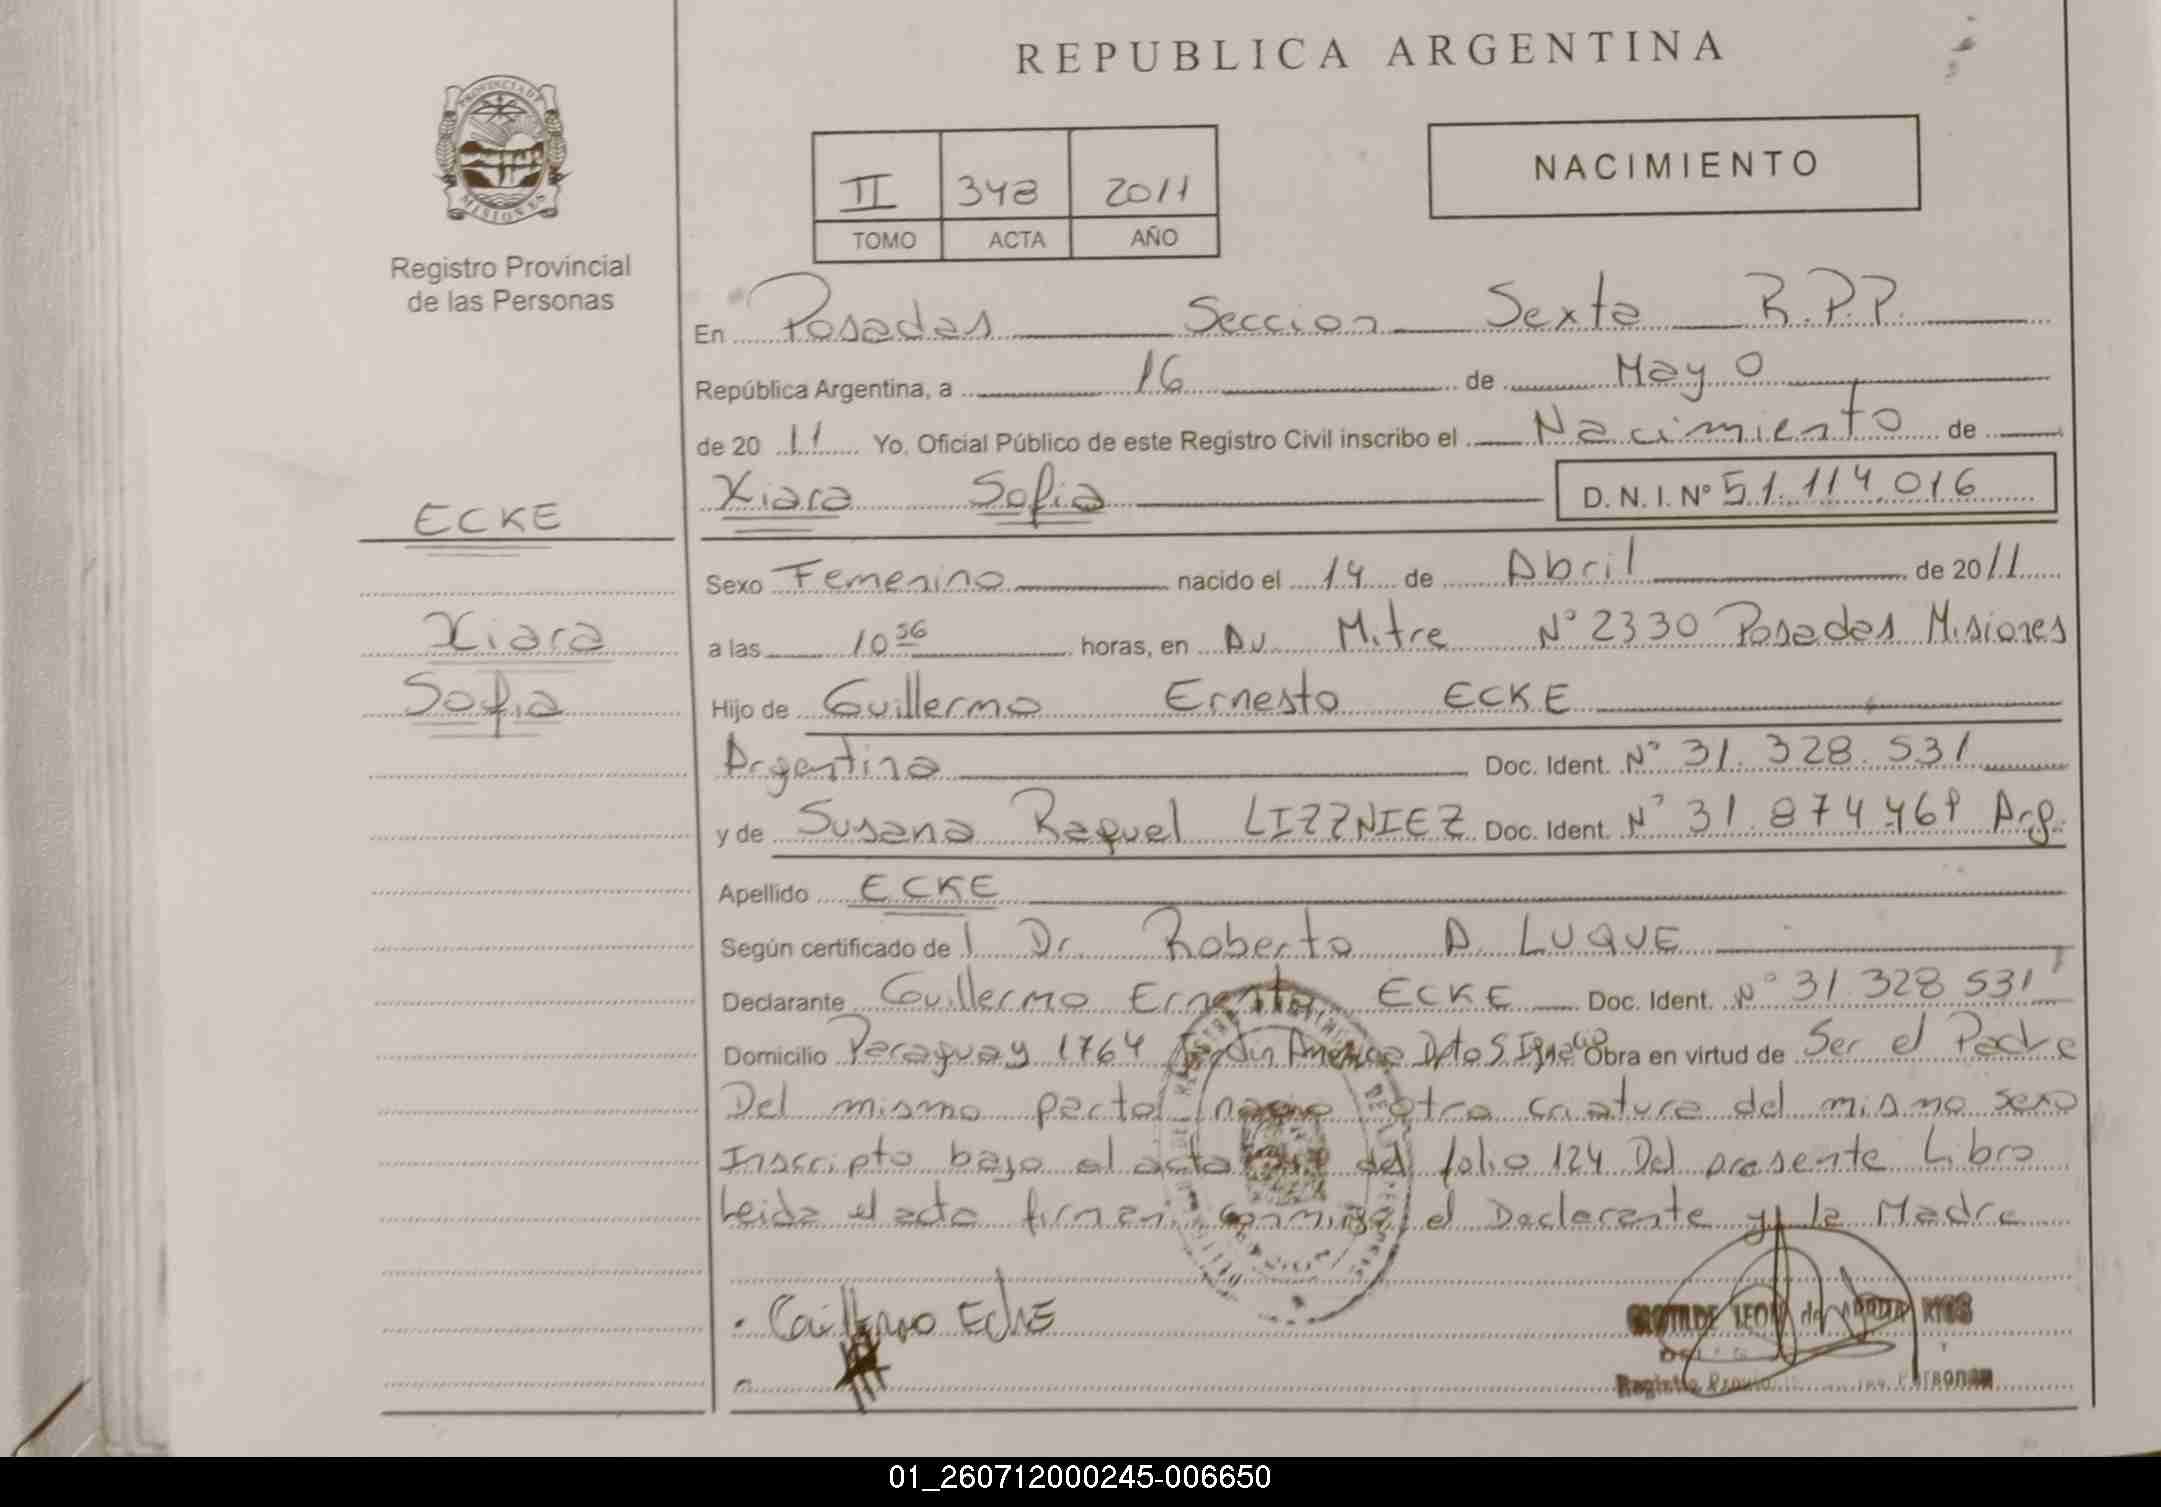 REPUBLICA ARGENTINA
PROVINCIA DE
MISIONES
Registro Provincial
de las Personas
II 348 2011
TOMO ACTA AÑO
NACIMIENTO
En Posadas Seccion Sexta R.P.P.
República Argentina, a 16 de Mayo
de 20 11 Yo, Oficial Público de este Registro Civil inscribo el Nacimiento de
Xiara Sofia D. N. I. Nº 51.114.016
ECKE
Xiara
Sofia
Sexo Femenino nacido el 14 de Abril de 2011
a las 10 56 horas, en Av. Mitre Nº 2330 Posadas Misiones
Hijo de Guillermo Ernesto ECKE
Argentina Doc. Ident. Nº 31.328.531
y de Susana Raquel LIZZNIEZ Doc. Ident. Nº 31.874.469 Arg.
Apellido ECKE
Según certificado de Dr. Roberto A. LUQUE
Declarante Guillermo Ernesto ECKE Doc. Ident. Nº 31.328.531
Domicilio Paraguay 1764 Jardin America Dpto S. Ignacio Obra en virtud de Ser el Padre
Del mismo parto nacio otra criatura del mismo sexo
Inscripto bajo el acta del folio 124 Del presente Libro
Leida el acta firman conmigo el Declarante y la Madre
Guillermo Ecke
CLOTILDE LEON de
Registro Personas
01_260712000245-006650